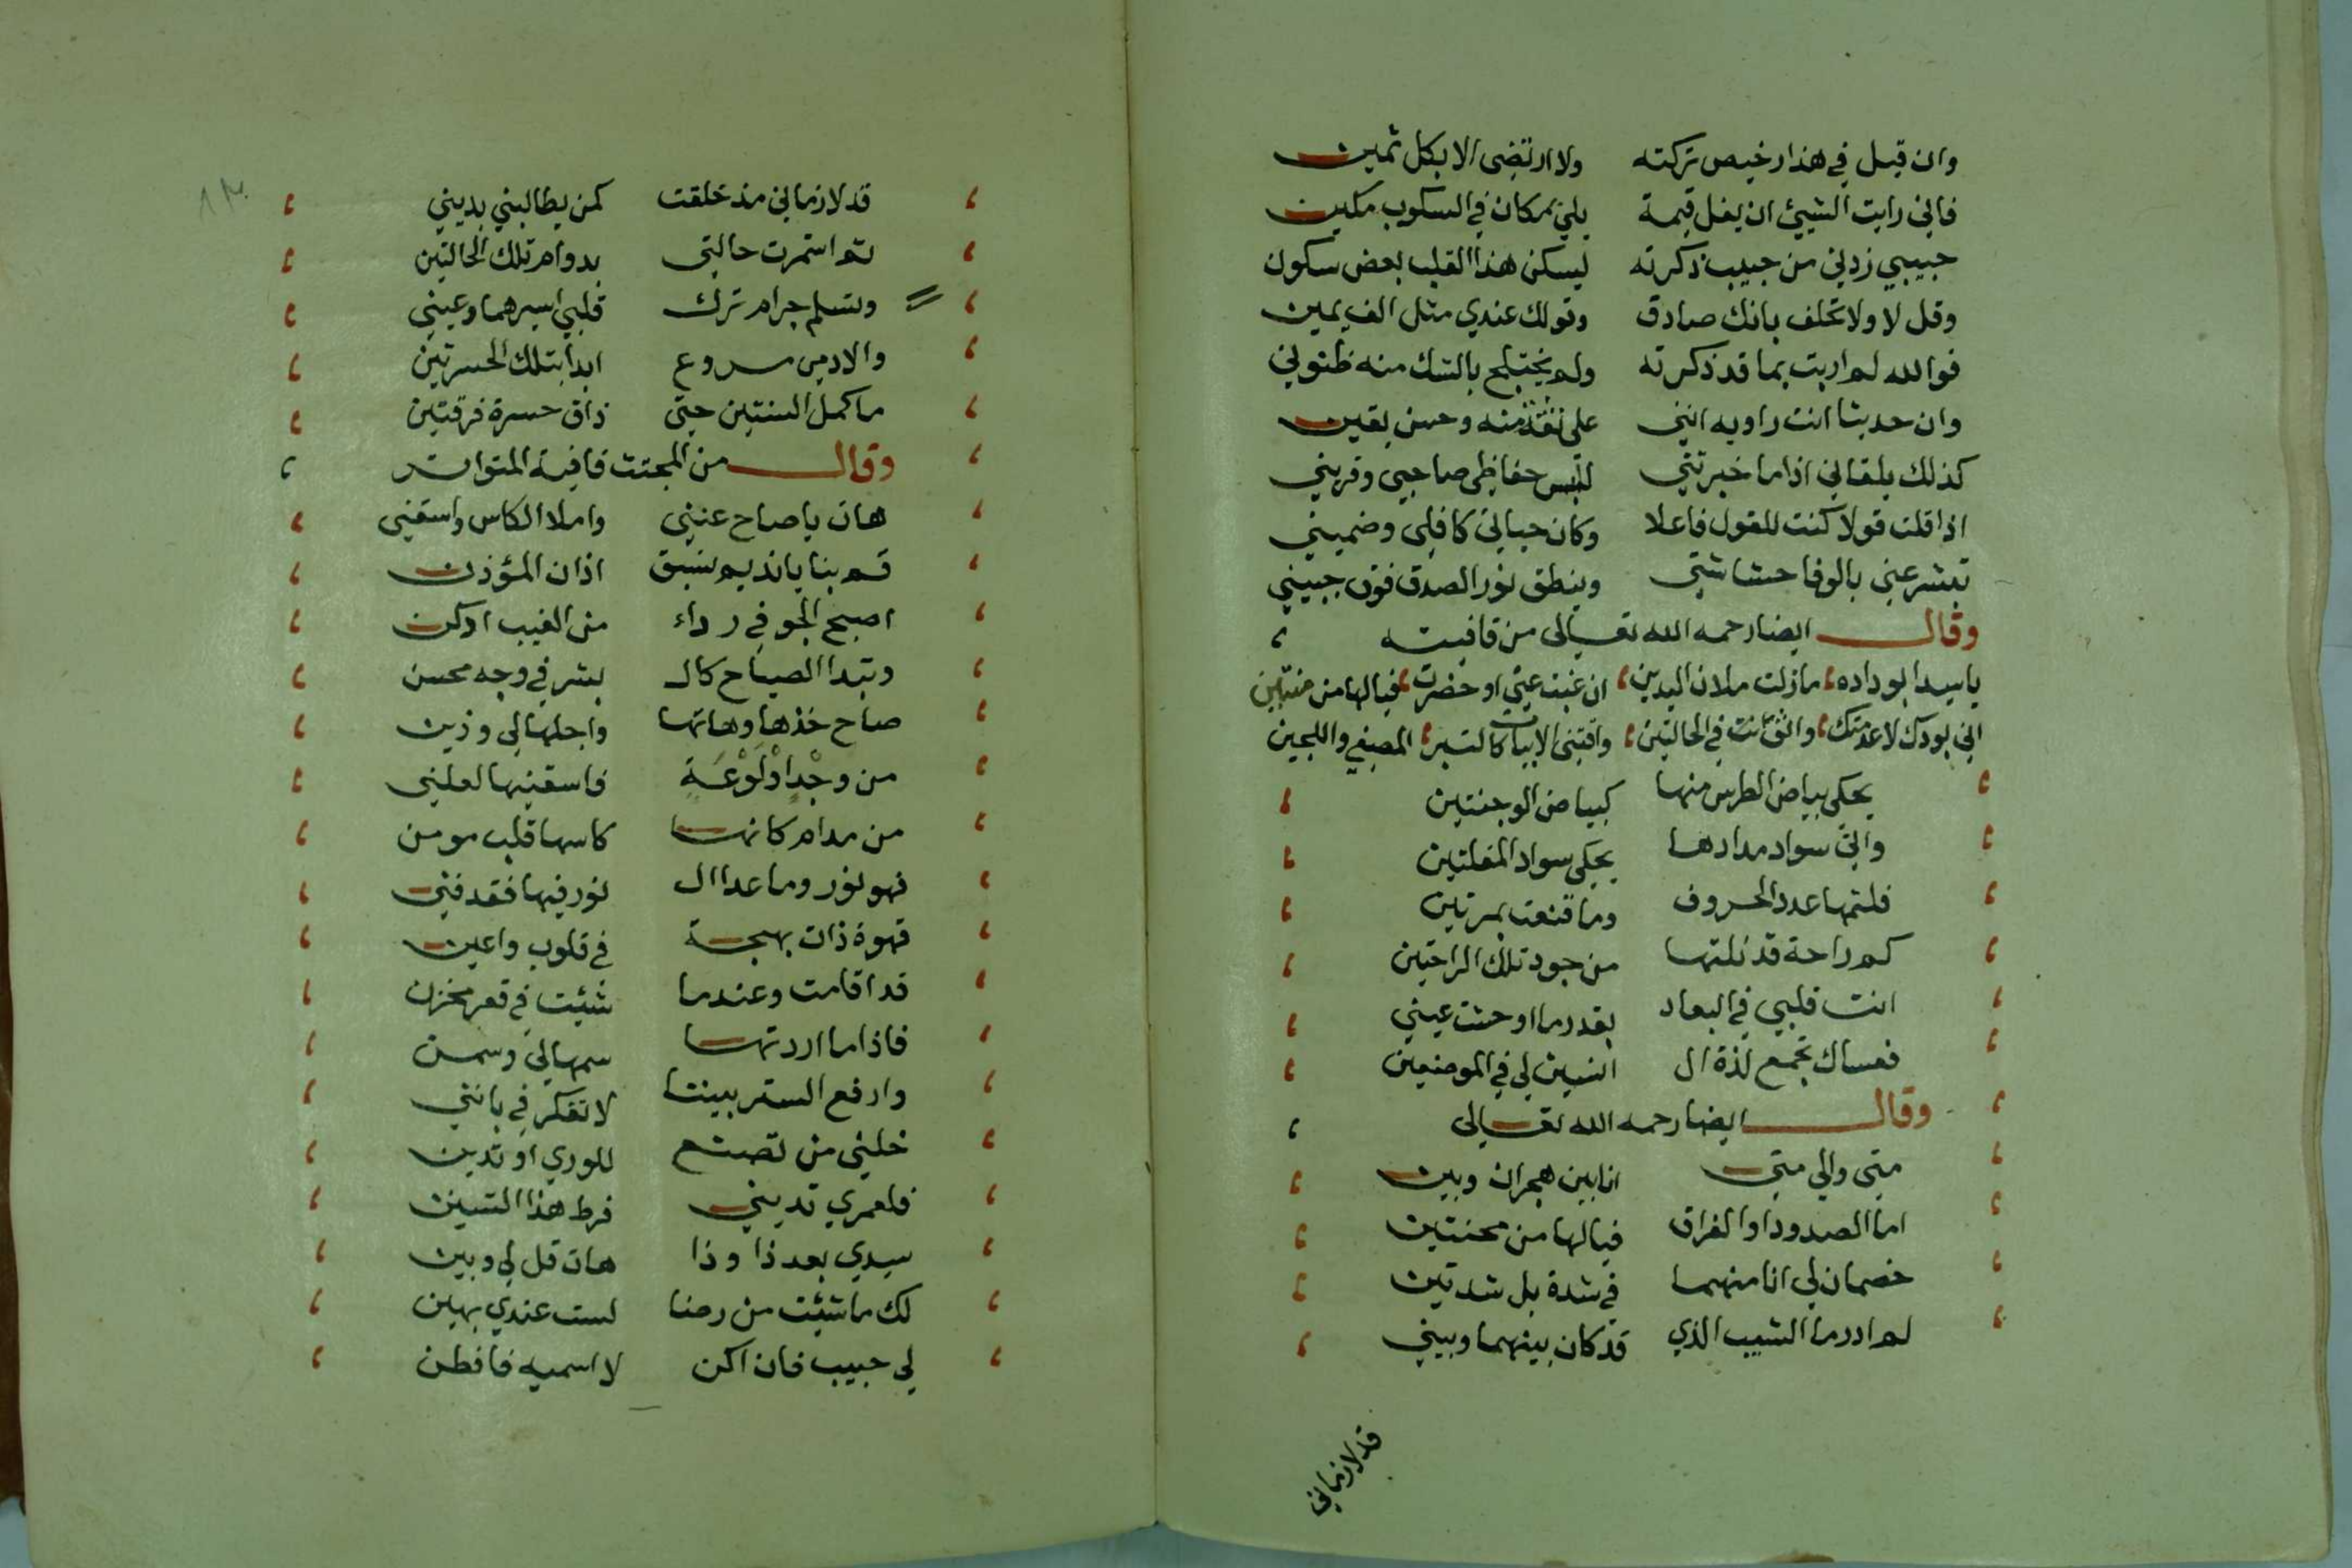 وان قيل في هذا رخيص تركته ولا ارتضى الا بكل ثمين
فاني رايت الشيئ ان يغل قيمة يلي بمكان في السكوب مكين
حبيبي زدني من حبيب ذكرته ليسكن هذا القلب بعض سكون
وقل لا ولا تحلف بانك صادق وقولك عندي مثل الف يمين
فوالله لم اربت بما قد ذكرته ولم يختلج بالشك منه ظنوني
وان حديثا انت راويه انني على ثقة منه وحسن يقين
كذلك يلقاني اذا ما خبرتني حفاظي صاحبي وقريني
اذا قلت قولا كنت للقول فاعلا وكان حيائي كافلى وضميني
تبشر عني بالوفا حشاشتي وينطق نور الصدق فوق جبيني
وقال ايضا رحمه الله تعالى من قافيته
يا سيدا بوداده ما زلت ملان اليدين ان غبت عني او حضرت فيالها من منتين
اني بودك لا عدمتك واثق انت في الحالتين واقتنى الابيات كالتبر المصفي واللجين
يحكى بياض الطرس منها كبياض الوجنتين
والى سواد مدادها يحكى سواد المقلتين
فلثمتها عدد الحروف وما قنعت بمرتين
كم راحة قد نلتها من جود تلك الراحتين
انت قلبي في البعاد بقدر ما اوحشت عيني
فعساك تجمع لذة ال انسين لي في الموضعين
وقال ايضا رحمه الله تعالى
متى والى متى انا بين هجران وبين
اما الصدود او الفراق فيا لها من محنتين
خصمان لي انا منهما في شدة بل شدتين
لم ادر ما الشيب الذي قد كان بينهما وبيني
قد لازماني
١٣٠
قد لازماني مذ خلقت كمن يطالبني بديني
ثم استمرت حالتي بدوام تلك الحالتين
وتسلم جرام ترك قلبي اسيرهما وعيني
والادمى مروع ابدا بتلك الحسرتين
ما كمل السنتين حتى ذاق حسرة فرقتين
وقال من المجتث قافية المتواتر
هات يا صاح عنيني واملا الكاس واسقني
قم بنا يا نديم نسبق اذان المؤذن
اصبح الجو في رداء من الغيب ادكن
وتبدا الصباح كال بشر في وجه محسن
صاح خذها وهاتها واجلها لي وزين
من وجد او لوعة فاسقنيها لعلني
من مدام كانها كاسها قلب مومن
فهو نور وما عدا ال نور فيها فقد فنى
قهوة ذات بهجة في قلوب واعين
قد اقامت وعندما شئت في قعر مخزن
فاذا ما اردتها سمها لي وسمن
وارفع الستر بيننا لا تفكر في بانني
خلني من تصنع للوري او تدين
فلعمري تديني فرط هذا التسين
سيدي بعد ذا وذا هات قل لي وبين
لك ما شئت من رضا لست عندي بهين
لي حبيب فان اكن لا اسميه فافطن